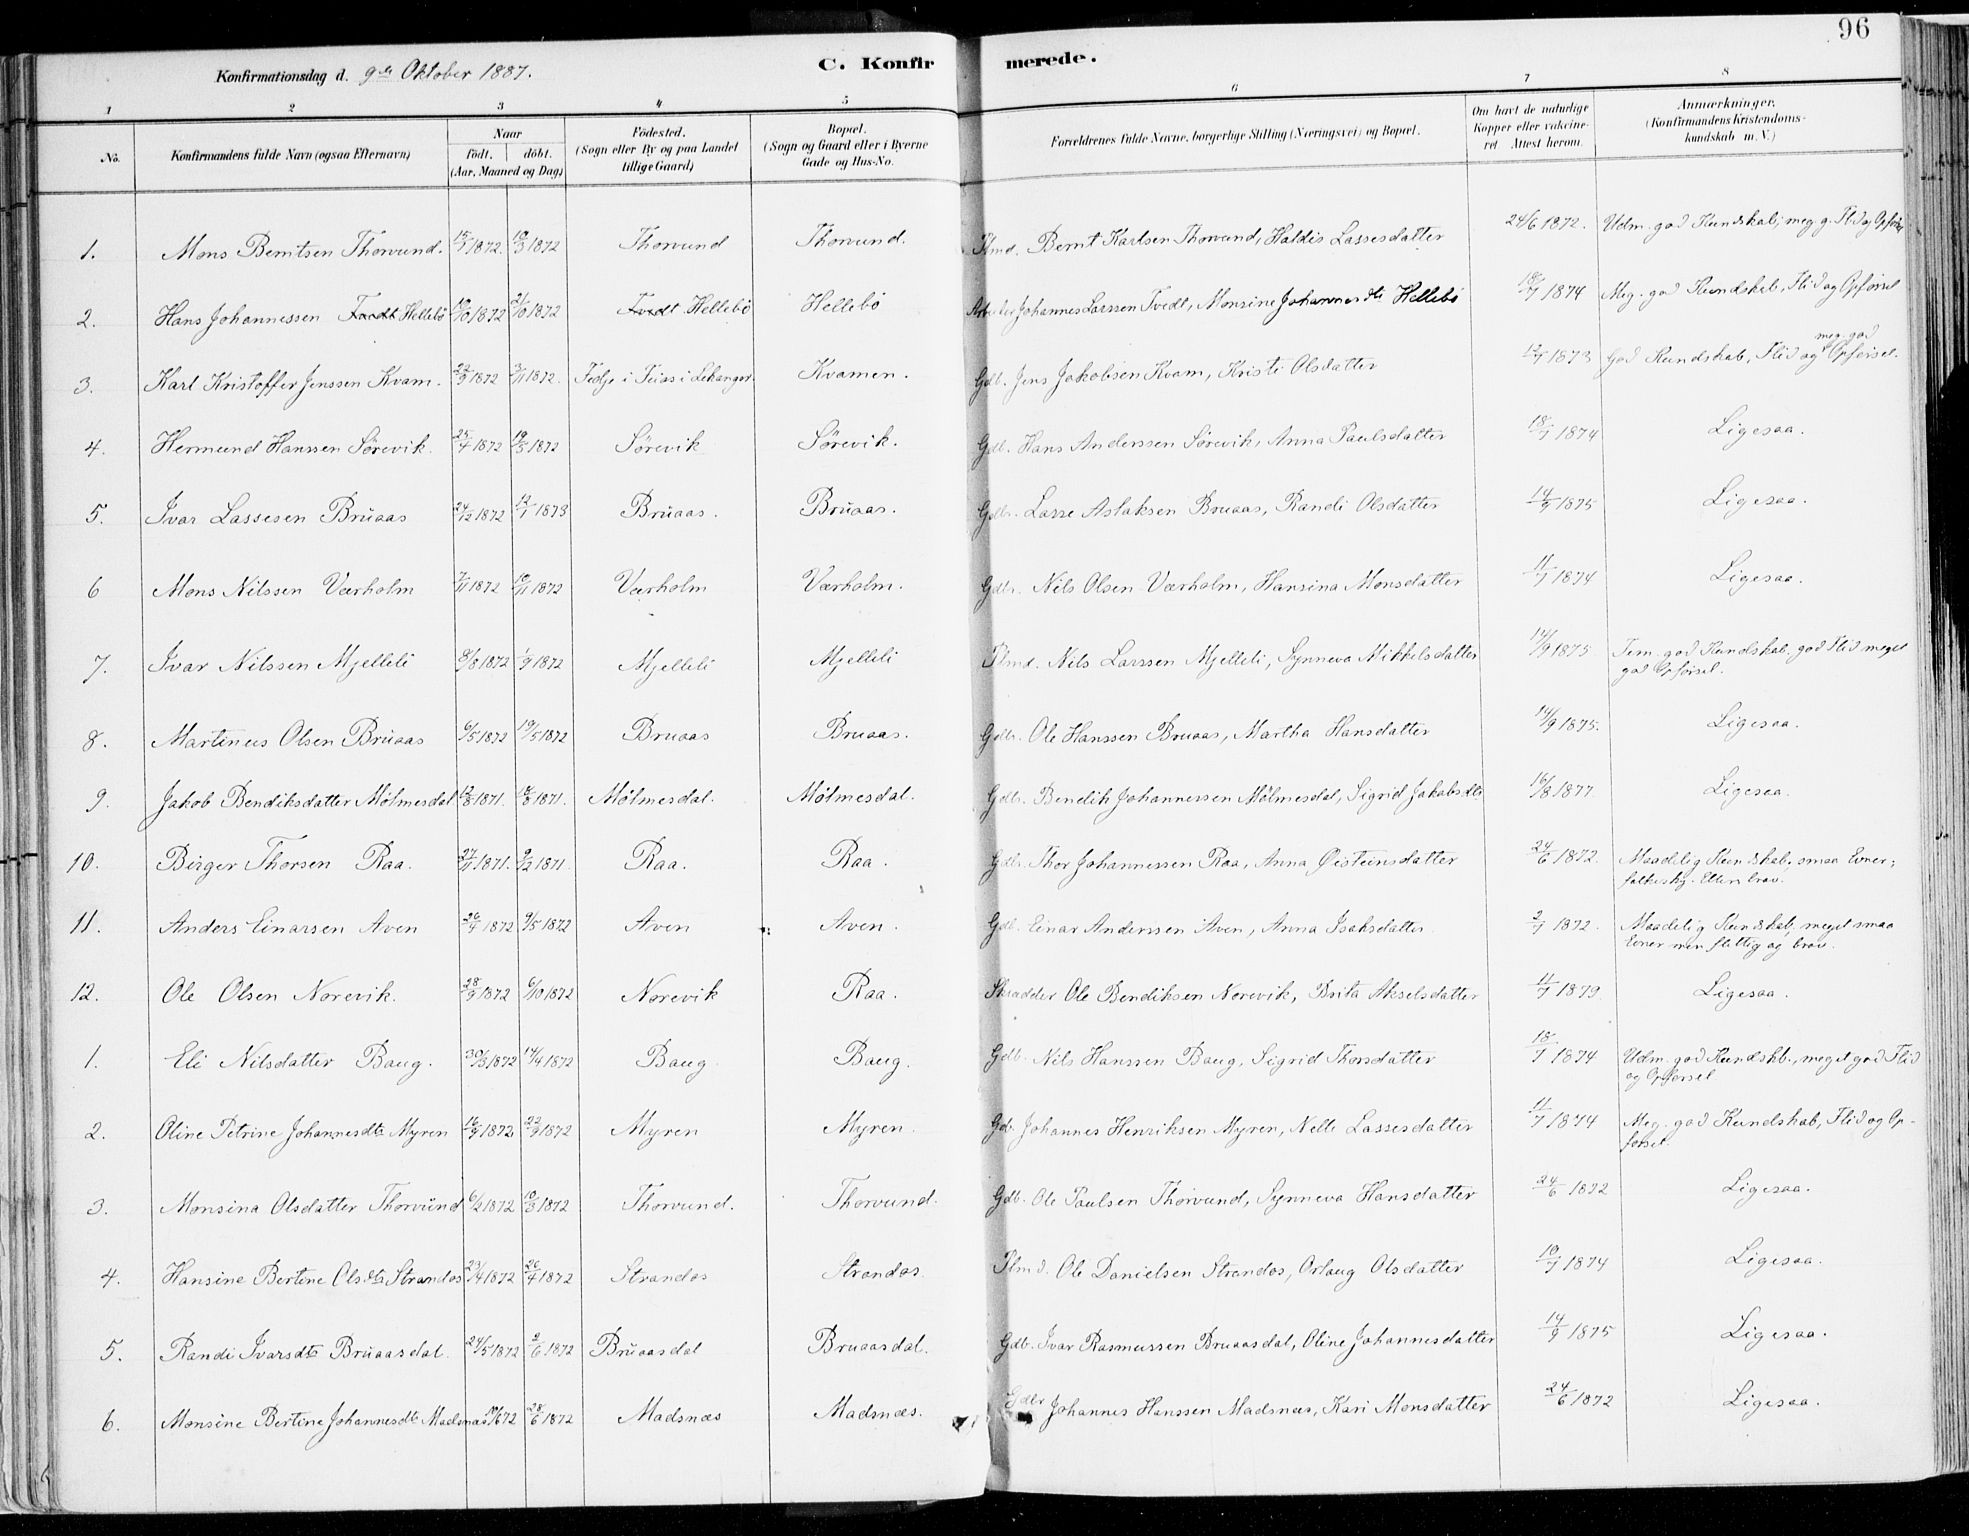 96
Konfirmationsdag d. 9de Oktober 1887. C. Konfirmerede.
1 2 3 4 5 6 7 8
No. Konfirmandens fulde Navn (ogsaa Efternavn) Naar født. døbt. (Aar, Maaned og Dag) Fødested. (Sogn eller By og paa Landet tillige Gaard) Bopæl. (Sogn og Gaard eller i Byerne Gade og Hus-No. Forældrenes fulde Navne, borgerlige Stilling (Næringsvei) og Bopæl. Om havt de naturlige Kopper eller vakcineret Attest herom. Anmærkninger. (Konfirmandens Kristendomskundskab m. V.)
1. Mons Berntsen Thorvund. 1872. 10/3 1872 Thorvund Thorvund. Plmd. Bernt Karlsen Thorvund, Haldis Lassesdatter 24/6 1872. Udm. god Kundskab, meg. g. Flid og Opførsel
2. Hans Johannessen Tvedt Hellebø 1872 1872 Tvedt Hellebø Hellebø Arbeider Johannes Larssen Tvedt, Monsine Johannesdtr Hellebø 18/7 1874 Meg. god Kundskab, Flid og Opførsel
3. Karl Kristoffer Jenssen Kvam. 22/9 1872 3/11 1872. i Lekanger. Kvamen. Gdb. Jens Jakobsen Kvam, Kristi Olsdatter 1873 God Kundskab, Flid og meg. god Opførsel.
4. Hermund Hanssen Sørevik. 25/4 1872 19/5 1872 Sørevik Sørevik. Gdb. Hans Anderssen Sørevik, Anna Paulsdatter 18/7 1874 Ligesaa.
5. Ivar Lassesen Bruaas 24/12 1872 12/1 1873 Bruaas. Bruaas. Gdbr. Lasse Aslaksen Bruaas, Randi Olsdatter 14/9 1875 Ligesaa.
6 Mons Nilssen Værholm 7/11 1872 10/11 1872 Værholm Værholm. Gdbr. Nils Olsen Værholm, Hansina Monsdatter 11/7 1874 Ligesaa.
7. Ivar Nilssen Mjelleli 8/8 1872 1/9 1872 Mjelleli Mjelleli Plmd. Nils Larssen Mjelleli, Synneva Mikkelsdatter 14/9 1875 Tem. god Kundskab. god Flid meget god Opførsel.
8. Martinus Olsen Bruaas 6/5 1872 19/5 1872 Bruaas Bruaas. Gdbr. Ole Hanssen Bruaas, Martha Hansdatter 14/9 1875. Ligesaa.
9. Jakob Bendiksdatter Mølmesdal 12/8 1871. 18/8 1871. Mølmesdal. Mølmesdal. Gdbr. Bendik Johannessen Mølmesdal, Sigrid Jakobsdtr 16/8 1877 Ligesaa.
10. Birger Thorsen Raa. 27/11 1871. 9/12 1871. Raa. Raa. Gdbr. Thor Johannessen Raa, Anna Øisteinsdatter 24/6 1872. Maadelig Kundskab, smaa Evner; Ellers brav.
11. Anders Einarsen Aven 26/4 1872 9/5 1872 Aven Aven. Gdb. Einar Anderssen Aven, Anna Isaksdatter 2/7 1872. Maadelig Kundskab, meget smaa Evner men flittig og brav.
12. Ole Olsen Norevik. 28/9 1872 6/10 1872 Norevik Raa. Skrædder Ole Bendiksen Norevik, Brita Akselsdatter 11/7 1879 Ligesaa.
1. Eli Nilsdatter Baug. 30/3 1872 14/4 1872 Baug Baug. Gdb. Nils Hanssen Baug, Sigrid Thorsdatter 18/7 1874 Udm. god Kundskb., meget god Flid og Opførsel
2. Oline Petrine Johannesdtr Myren 16/9 1872 22/9 1872 Myren Myren. Gdb. Johannes Henriksen Myren, Nelle Lassesdatter 11/7 1874 Meg. god Kundskab, Flid og Opførsel.
3. Monsina Olsdatter Thorvund 6/2 1872 10/3 1872 Thorvund. Thorvund. Gdb. Ole Paulsen Thorvund, Synneva Hansdatter 24/6 1872 Ligesaa.
4. Hansine Bertine Olsdtr Strandos 23/4 1872 26/4 1872 Strandos Strandos. Plmd. Ole Danielsen Strandos, Orlaug Olsdatter 10/7 1874 Ligesaa.
5. Randi Ivarsdtr Bruaasdal. 24/5 1872 2/6 1872 Bruaasdal Bruaasdal. Gdb. Ivar Rasmussen Bruaasdal, Oline Johannesdatter 14/9 1875 Ligesaa.
6. Monsine Bertine Johannesdtr Madsnæs 28/6 1872 Madsnæs Madsnæs. Gdbr Johannes Hanssen Madsnæs, Kari Monsdatter 24/6 1872 Ligesaa.